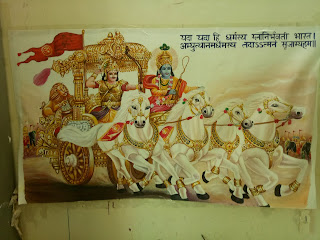 यदा यदा हि धर्मस्य ग्लानिर्भवती भारत।
अभ्युत्थानमधर्मस्य तदाऽऽत्मानं सृजाम्यहम्॥